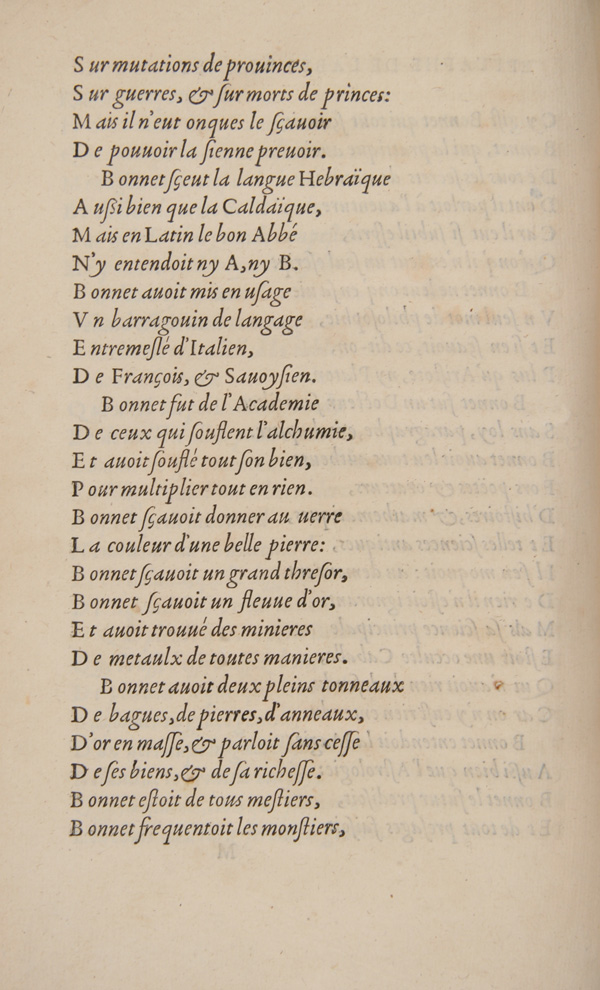 Sur mutations de prouinces,
Sur guerres, & ſur morts de princes:
Mais il n'eut onques le ſçauoir
De pouuoir la ſienne preuoir.
Bonnet ſçeut la langue Hebraïque
Außi bien que la Caldaïque,
Mais en Latin le bon Abbé
N'y entendoit ny A, ny B.
Bonnet auoit mis en uſage
Vn barragouin de langage
Entremeſlé d'Italien,
De François, & Sauoyſien.
Bonnet fut de l'Academie
De ceux qui ſouflent l'alchumie,
Et auoit ſouflé tout ſon bien,
Pour multiplier tout en rien.
Bonnet ſçauoit donner au uerre
La couleur d'une belle pierre:
Bonnet ſçauoit un grand threſor,
Bonnet ſçauoit un fleuue d'or,
Et auoit trouué des minieres
De metaulx de toutes manieres.
Bonnet auoit deux pleins tonneaux
De bagues, de pierres, d'anneaux,
D'or en maſſe, & parloit ſans ceſſe
De ſes biens, & de ſa richeſſe.
Bonnet eſtoit de tous meſtiers,
Bonnet frequentoit les monſtiers,